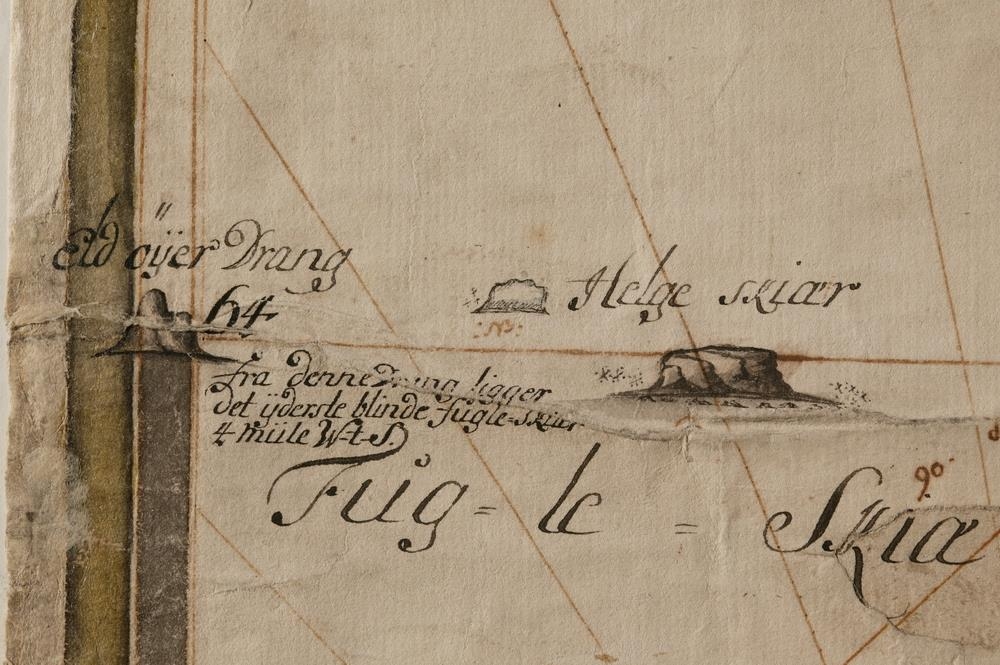 Eld öÿer Drang
64
Helge skiær
Fra denne Drang ligger
det ÿderste blinde fugle=skiær
4 müile W-t-S.
Fúg=le = Skiæ
90